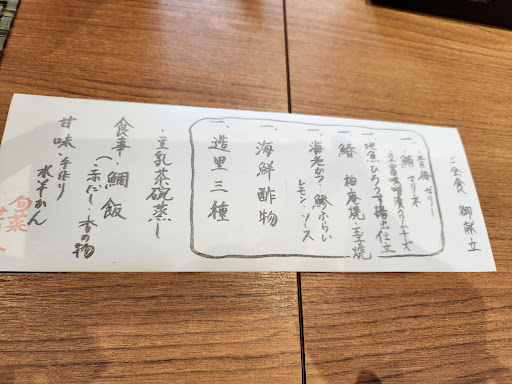 ご会食 御献立
梅 ゼリー
一、鮪 マリネ
味噌漬クリームチーズ
一、地魚ひろうす揚出仕立
一、鰆 柚庵焼・玉子焼
一、海老かつ 鱚ふらい
レモン・ソース
一、海鮮酢物
一、造里三種
・豆乳茶碗蒸し
食事・鯛飯
(・赤だし・香の物
甘味・手作り
水羊かん
旬菜